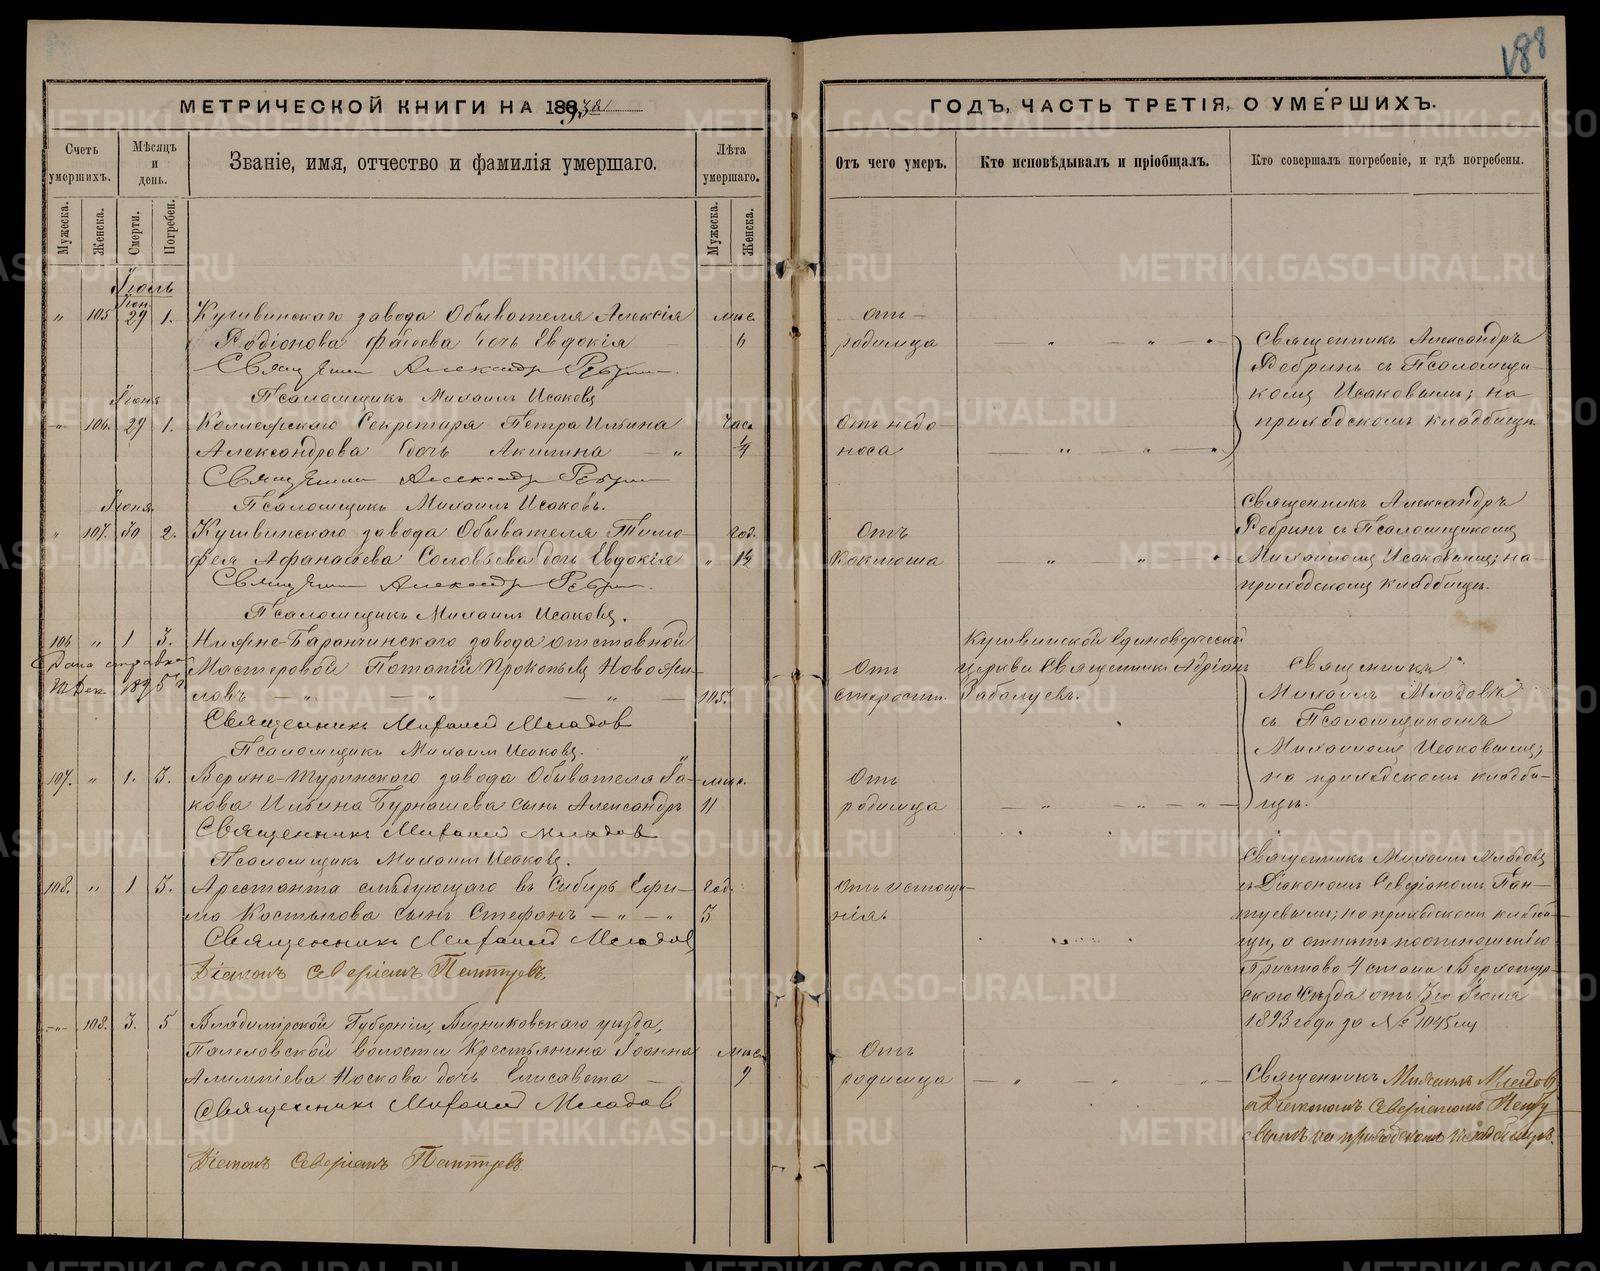 188
МЕТРИЧЕСКОЙ КНИГИ НА 1893й
ГОДЪ, ЧАСТЬ ТРЕТІЯ, О УМЕРШИХЪ.
Счетъ умершихъ.
Мѣсяцъ и день.
Званіе, имя, отчество и фамилія умершаго.
Лѣта умершаго.
Отъ чего умеръ.
Кто исповѣдывалъ и пріобщалъ.
Кто совершалъ погребеніе, и гдѣ погребены.
Мужеска.
Женска.
Смерти.
Погребен.
Мужеска.
Женска.
Іюль
Іюн.
" 105 29 1. Кушвинскаго завода Обывателя Алексія мѣс. отъ
Родіонова Фадѣева дочь Евдокія 6 родимца
Священникъ Александръ Ребринъ
Псаломщикъ Михаилъ Исаковъ
Священникъ Александръ
Ребринъ съ Псаломщи-
комъ Исаковымъ; на
приходскомъ кладбищѣ.
Іюня
" 106. 29 1. Коллежскаго Секретаря Петра Ильина Часа Отъ недо-
Александрова дочь Акилина " 1/4 носа
Священникъ Александръ Ребринъ
Псаломщикъ Михаилъ Исаковъ.
Іюня
" 107. 30 2. Кушвинскаго завода Обывателя Тимо- год. Отъ
фея Афанасьева Соловьева дочь Евдокія " 1½ коклюша
Священникъ Александръ Ребринъ
Псаломщикъ Михаилъ Исаковъ.
Священникъ Александръ
Ребринъ съ Псаломщикомъ
Михаиломъ Исаковымъ; на
приходскомъ кладбищѣ.
106 " 1 3. Нижне-Баранчинскаго завода отставной
Дана справка
Мастеровой Потапій Прокопьевъ Новожи- Отъ
12 Дек. 1895 г.
ловъ 105. старости.
Священникъ Михаилъ Младовъ
Псаломщикъ Михаилъ Исаковъ.
Кушвинской Единоверческой
церкви Священникъ Адріанъ
Священникъ
Михаилъ Младовъ
съ Псаломщикомъ
Михаиломъ Исаковымъ;
на приходскомъ кладби-
щѣ.
107. " 1. 3. Верхне-Туринскаго завода Обывателя Іа- мѣс. Отъ
кова Ильина Бурнашева сынъ Александръ 11 родимца
Священникъ Михаилъ Младовъ
Псаломщикъ Михаилъ Исаковъ.
108. " 1 3. Арестанта слѣдующаго въ Сибирь Ефи- год. отъ истоще-
ма Костылова сынъ Стефанъ 3 нія.
Священникъ Михаилъ Младовъ
Діаконъ Северіанъ Пантуевъ.
Священникъ Михаилъ Младовъ
съ Діакономъ Северіаномъ Пан-
туевымъ; на приходскомъ кладби-
щѣ, а отпетъ по отношенію
Пристава 4 стана Верхотур-
скаго Уѣзда отъ 3го Іюля
1893 года за № 1045мъ
" 108. 3. 5 Владимірской Губерніи, Вязниковскаго уѣзда,
Палеховской волости Крестьянина Іоанна мѣс. Отъ
Алимпіева Носкова дочь Елисавета 9 родимца
Священникъ Михаилъ Младовъ
Діаконъ Северіанъ Пантуевъ
Священникъ Михаилъ Младовъ
съ Діакономъ Северіаномъ Панту
евымъ на приходскомъ кладбищѣ.
METRIKI.GASO-URAL.RU